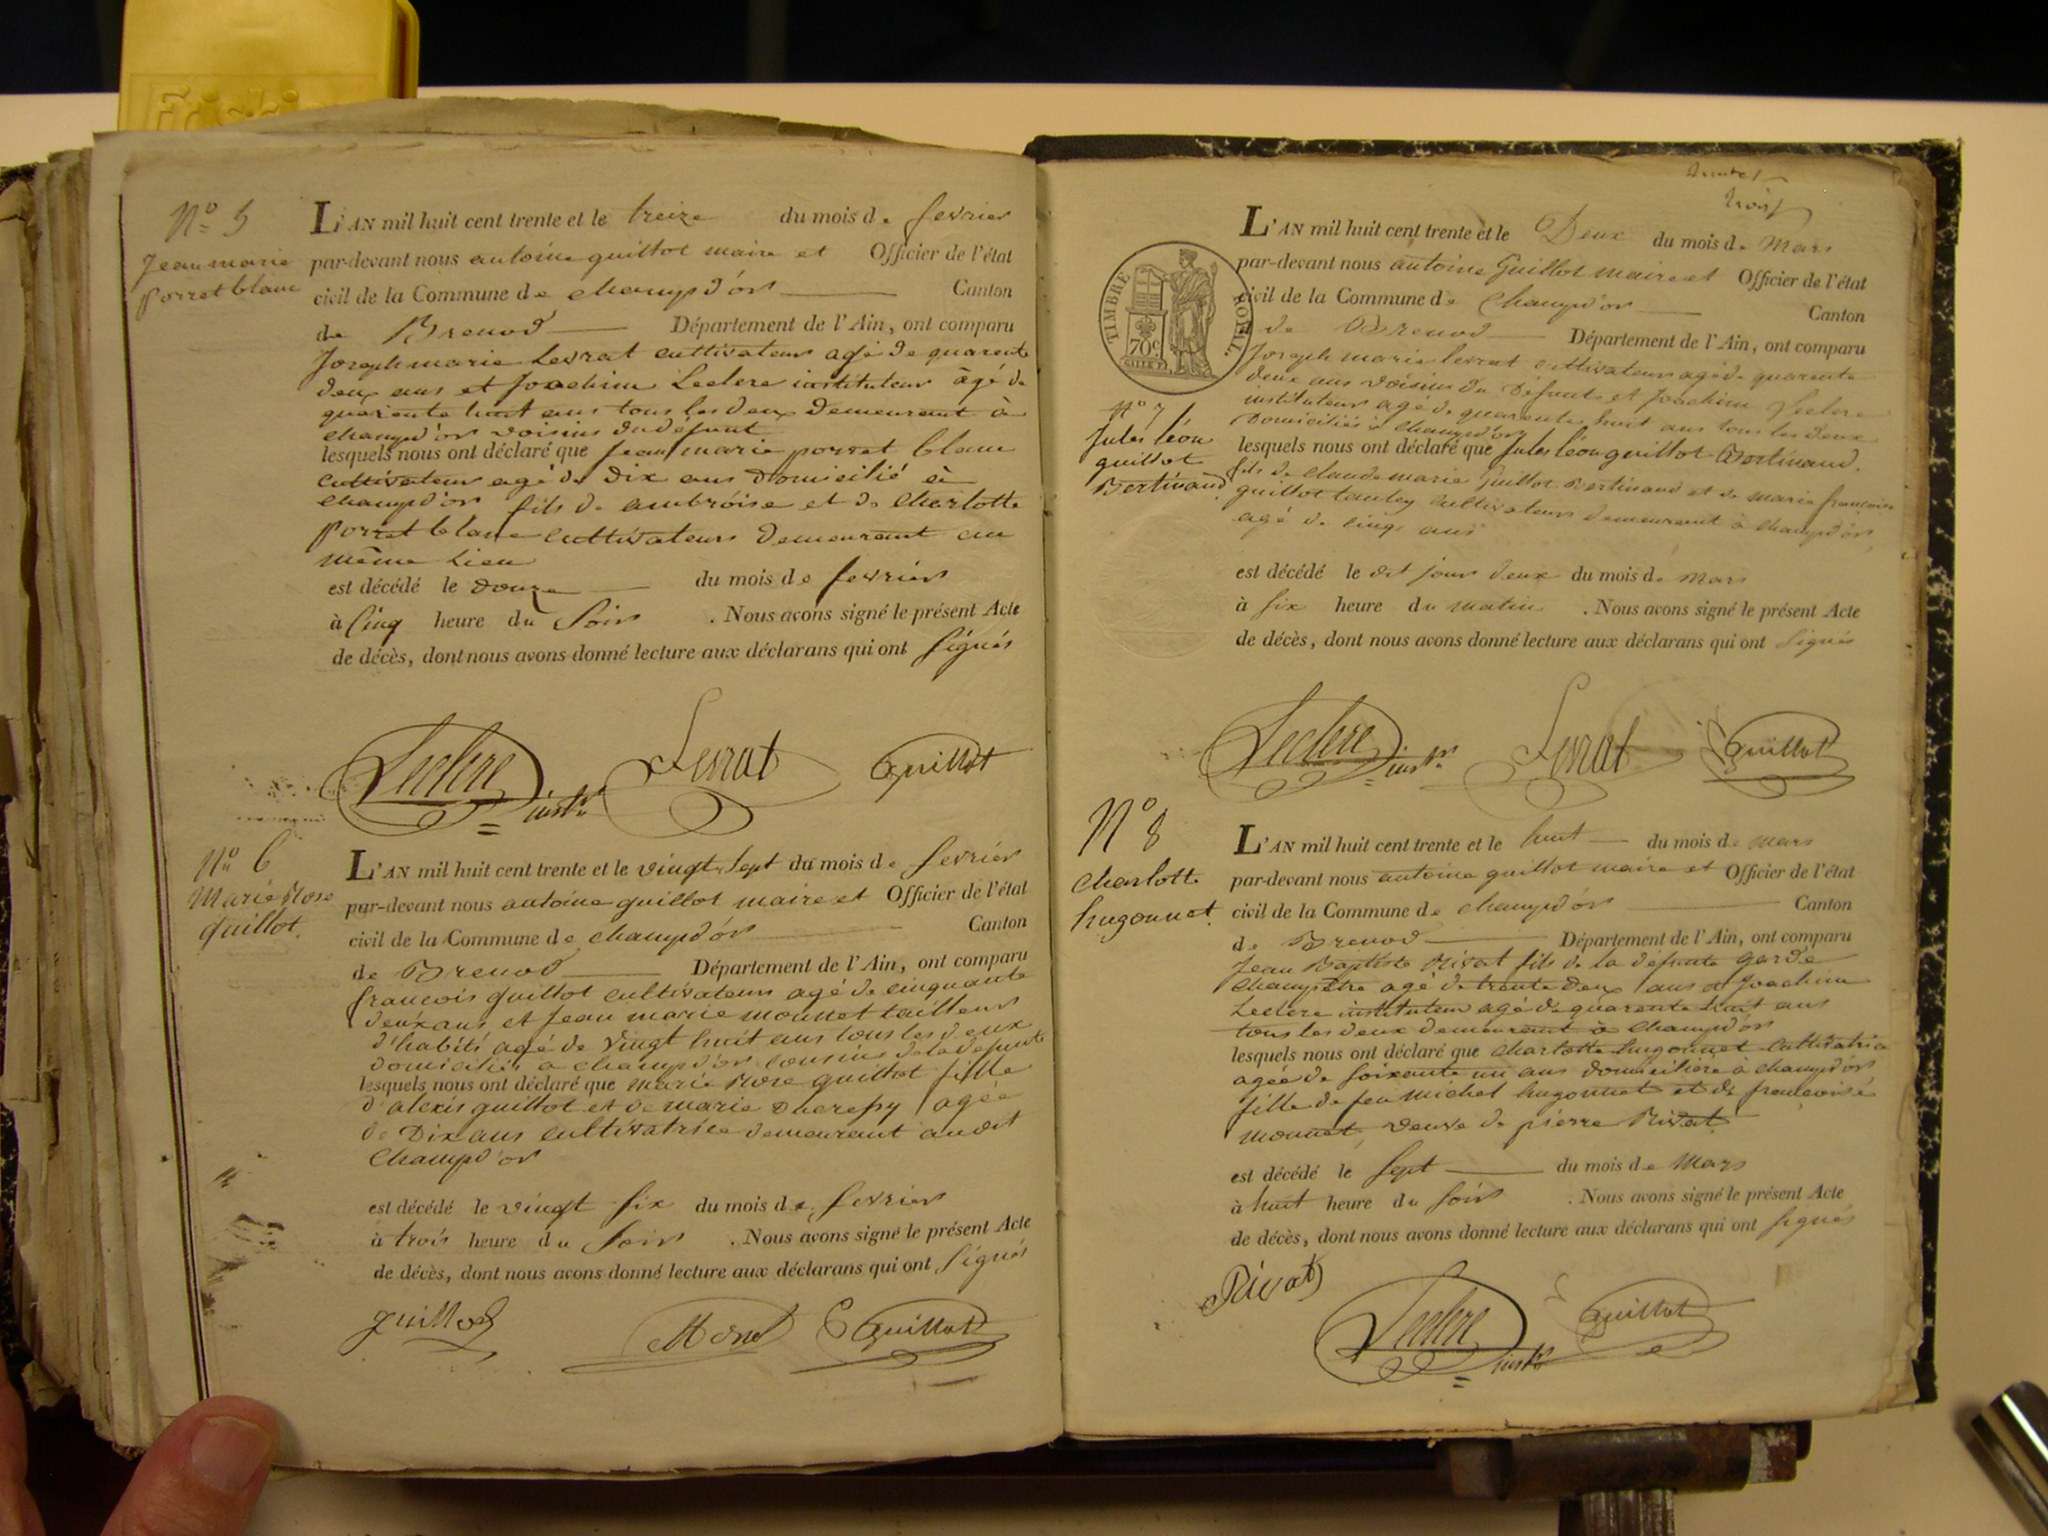 N° 5
Jean marie
porret blanc
L'AN mil huit cent trente et le treize du mois de fevrier
par-devant nous antoine guillot maire et Officier de l'état
civil de la Commune de champd'or Canton
de Brenod Département de l'Ain, ont comparu
Joseph marie Levrat cultivateur agé de quarente
deux ans et Joachim Leclere instituteur âgé de
quarente huit ans tous les deux demeurant à
champd'or voisins du defunt
lesquels nous ont déclaré que jean marie porret blanc
cultivateur agé de dix ans domicilié à
champd'or fils de ambroise et de charlotte
porret blanc cultivateurs demeurant au
même lieu
est décédé le douze du mois de fevrier
à cinq heure du soir . Nous avons signé le présent Acte
de décès, dont nous avons donné lecture aux déclarans qui ont signés
Leclere instr Levrat Guillot
N° 6
Marie Rose
guillot.
L'AN mil huit cent trente et le vingt sept du mois de fevrier
par-devant nous antoine guillot maire et Officier de l'état
civil de la Commune de champd'or Canton
de Brenod Département de l'Ain, ont comparu
francois guillot cultivateur agé de cinquante
deux ans et Jean marie monnet tailleur
d'habits agé de vingt huit ans tous les deux
domiciliés à champd'or cousins de la defunte
lesquels nous ont déclaré que marie Rose guillot fille
d'alexis guillot et de marie agée
de Dix ans cultivatrice demeurant audit
champd'or
est décédé le vingt six du mois de fevrier
à trois heure du soir . Nous avons signé le présent Acte
de décès, dont nous avons donné lecture aux déclarans qui ont signés
guillot Monet Guillot
trois
TIMBRE ROYAL
70c
L'AN mil huit cent trente et le Deux du mois de Mars
par-devant nous antoine Guillot maire et Officier de l'état
civil de la Commune de Champd'or Canton
de Brenod Département de l'Ain, ont comparu
Joseph marie levrat cultivateur agé de quarente
deux ans voisin du Défunt et Joachim Leclere
instituteur agé de quarente huit ans tous les deux
Domiciliés à champd'or
N° 7
Jules léon
guillot
Bertinand
lesquels nous ont déclaré que Jules léon guillot Bertinand.
fils de claude marie Guillot Bertinand et de marie francoise
guillot cultivateurs demeurant à champd'or
agé de cinq ans
est décédé le dit jour deux du mois de mars
à six heure du matin . Nous avons signé le présent Acte
de décès, dont nous avons donné lecture aux déclarans qui ont signés
Leclere instr Levrat Guillot
N° 8
charlotte
hugonnet.
L'AN mil huit cent trente et le huit du mois de mars
par-devant nous antoine guillot maire et Officier de l'état
civil de la Commune de champd'or Canton
de Brenod Département de l'Ain, ont comparu
Jean Baptiste Rivat fils de la defunte garde
champêtre agé de trente deux ans et Joachim
Leclere instituteur agé de quarente huit ans
tous les deux demeurant à champd'or
lesquels nous ont déclaré que charlotte hugonnet cultivatrice
agée de soixante un ans domiciliée à champd'or
fille de feu michel hugonnet et de francoise
monnet, veuve de pierre Rivat
est décédé le sept du mois de Mars
à huit heure du soir . Nous avons signé le présent Acte
de décès, dont nous avons donné lecture aux déclarans qui ont signés
Rivat
Leclere instr Guillot